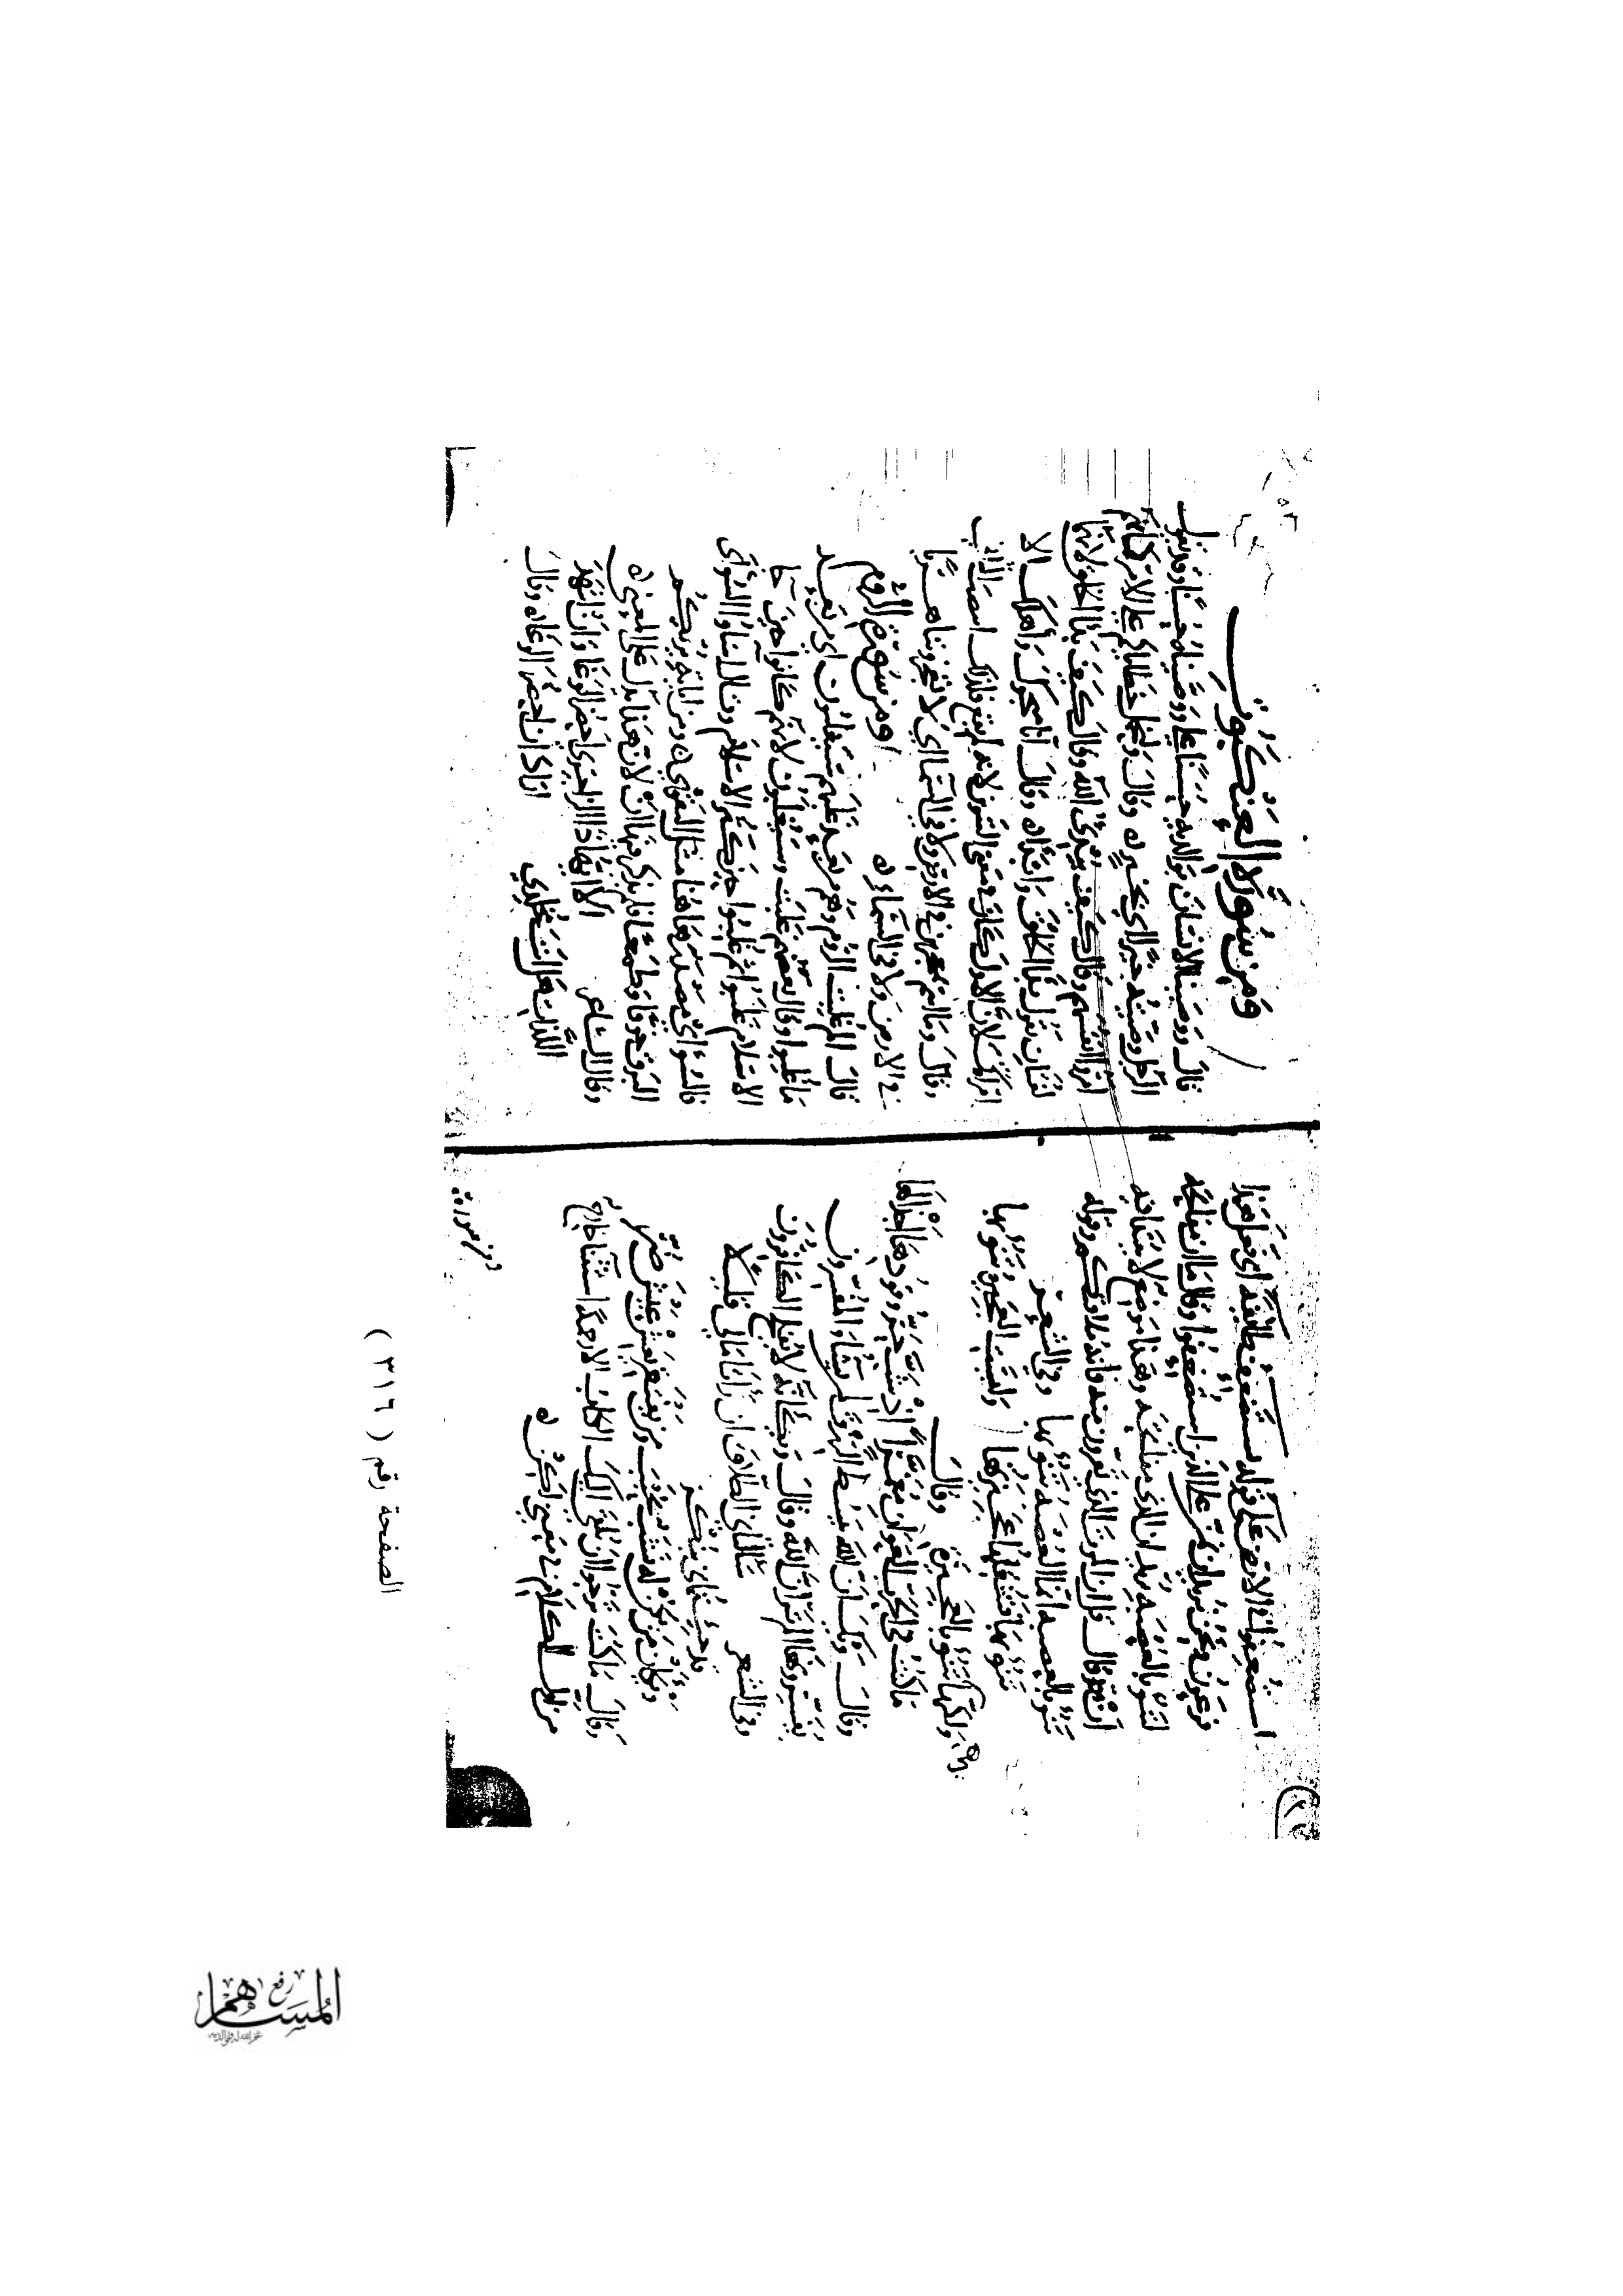 استضعفوا في الارض على قوله يستضعف طائفة اي فعل هذا
فرعون ونحن نريد ان نمن على الذين استضعفوا وقال ما ان مفاتحه
لتنوء بالعصبة يريد ان الذي مفاتحه وهذا موضع لا يبتدا فيه
ان وقد قال قل ان الموت الذي تفرون منه فانه ملاقيكم وقوله
تنوء بالعصبة انما العصبة تنوء بها وفي الشعر
تنوء بها فتثقلها عجيزتها وليست العجيزة تنوء بها
ولكنها تنوء بالعجيزة وقال
ما كنت في الحرب العوان مغمرا اذ شب حر وقودها اجذالها
وقال ويكان الله يبسط الرزق لمن يشاء المفسرون
يفسرونها الم تر ان الله وقال ويكانه لا يفلح الكافرون
وفي الشعر سالتاني الطلاق ان راتا مالي قليلا
قد جئتماني بنكر
ويكان من يكن له نشب يحبب ومن يفتقر يعش عيش ضر
وقال ما كنت ترجوا ان يلقى اليك الكتاب الا رحمة استثناء خارج
من اول الكلام في معنى لكن
ومن سورة
ومن سورة العنكبوت
قال ووصينا الانسان بوالديه حسنا على ووصيناه حسنا وقد يقول
الرجل وصيته خيرا اي بخير وقال ولنحمل خطاياكم على الامر كانهم
امروا انفسهم وقال كيف يبدئ الله وقال كيف بدا الخلق لانها
لغتان تقول بدا الخلق وابدا وقال انا منجوك واهلك الا
امراتك لان الاول كان في معنى التنوين لانه لم يقع فلذلك انتصب الثاني
وقال وما انتم بمعجزين في الارض ولا في السماء اي لا تعجزوننا هربا
في الارض ولا في السماء
ومن سورة الروم
قال الم غلبت الروم وهم من بعد غلبهم سيغلبون اي من بعد
ما غلبوا وقال بعضهم غلبت وسيغلبون لانهم كانوا حين جا
الاسلام غلبوا ثم غلبوا حين كثر الاسلام وقال اساؤا السوأى
فالسوأى مصدرها هنا مثل التقوى ومن اياته يريكم
البرق خوفا وطمعا فلم يذكر فيها ان لان هذا يدل على المعنى
وقال الشاعر الا ايهذا الزاجري احضر الوغى وان اشهد
اللذات هل انت مخلدي اراد ان احضر الوغى وقال
الصفحة رقم ( ٣١٦ )
رفع
المساهم
غفر الله له ولوالديه